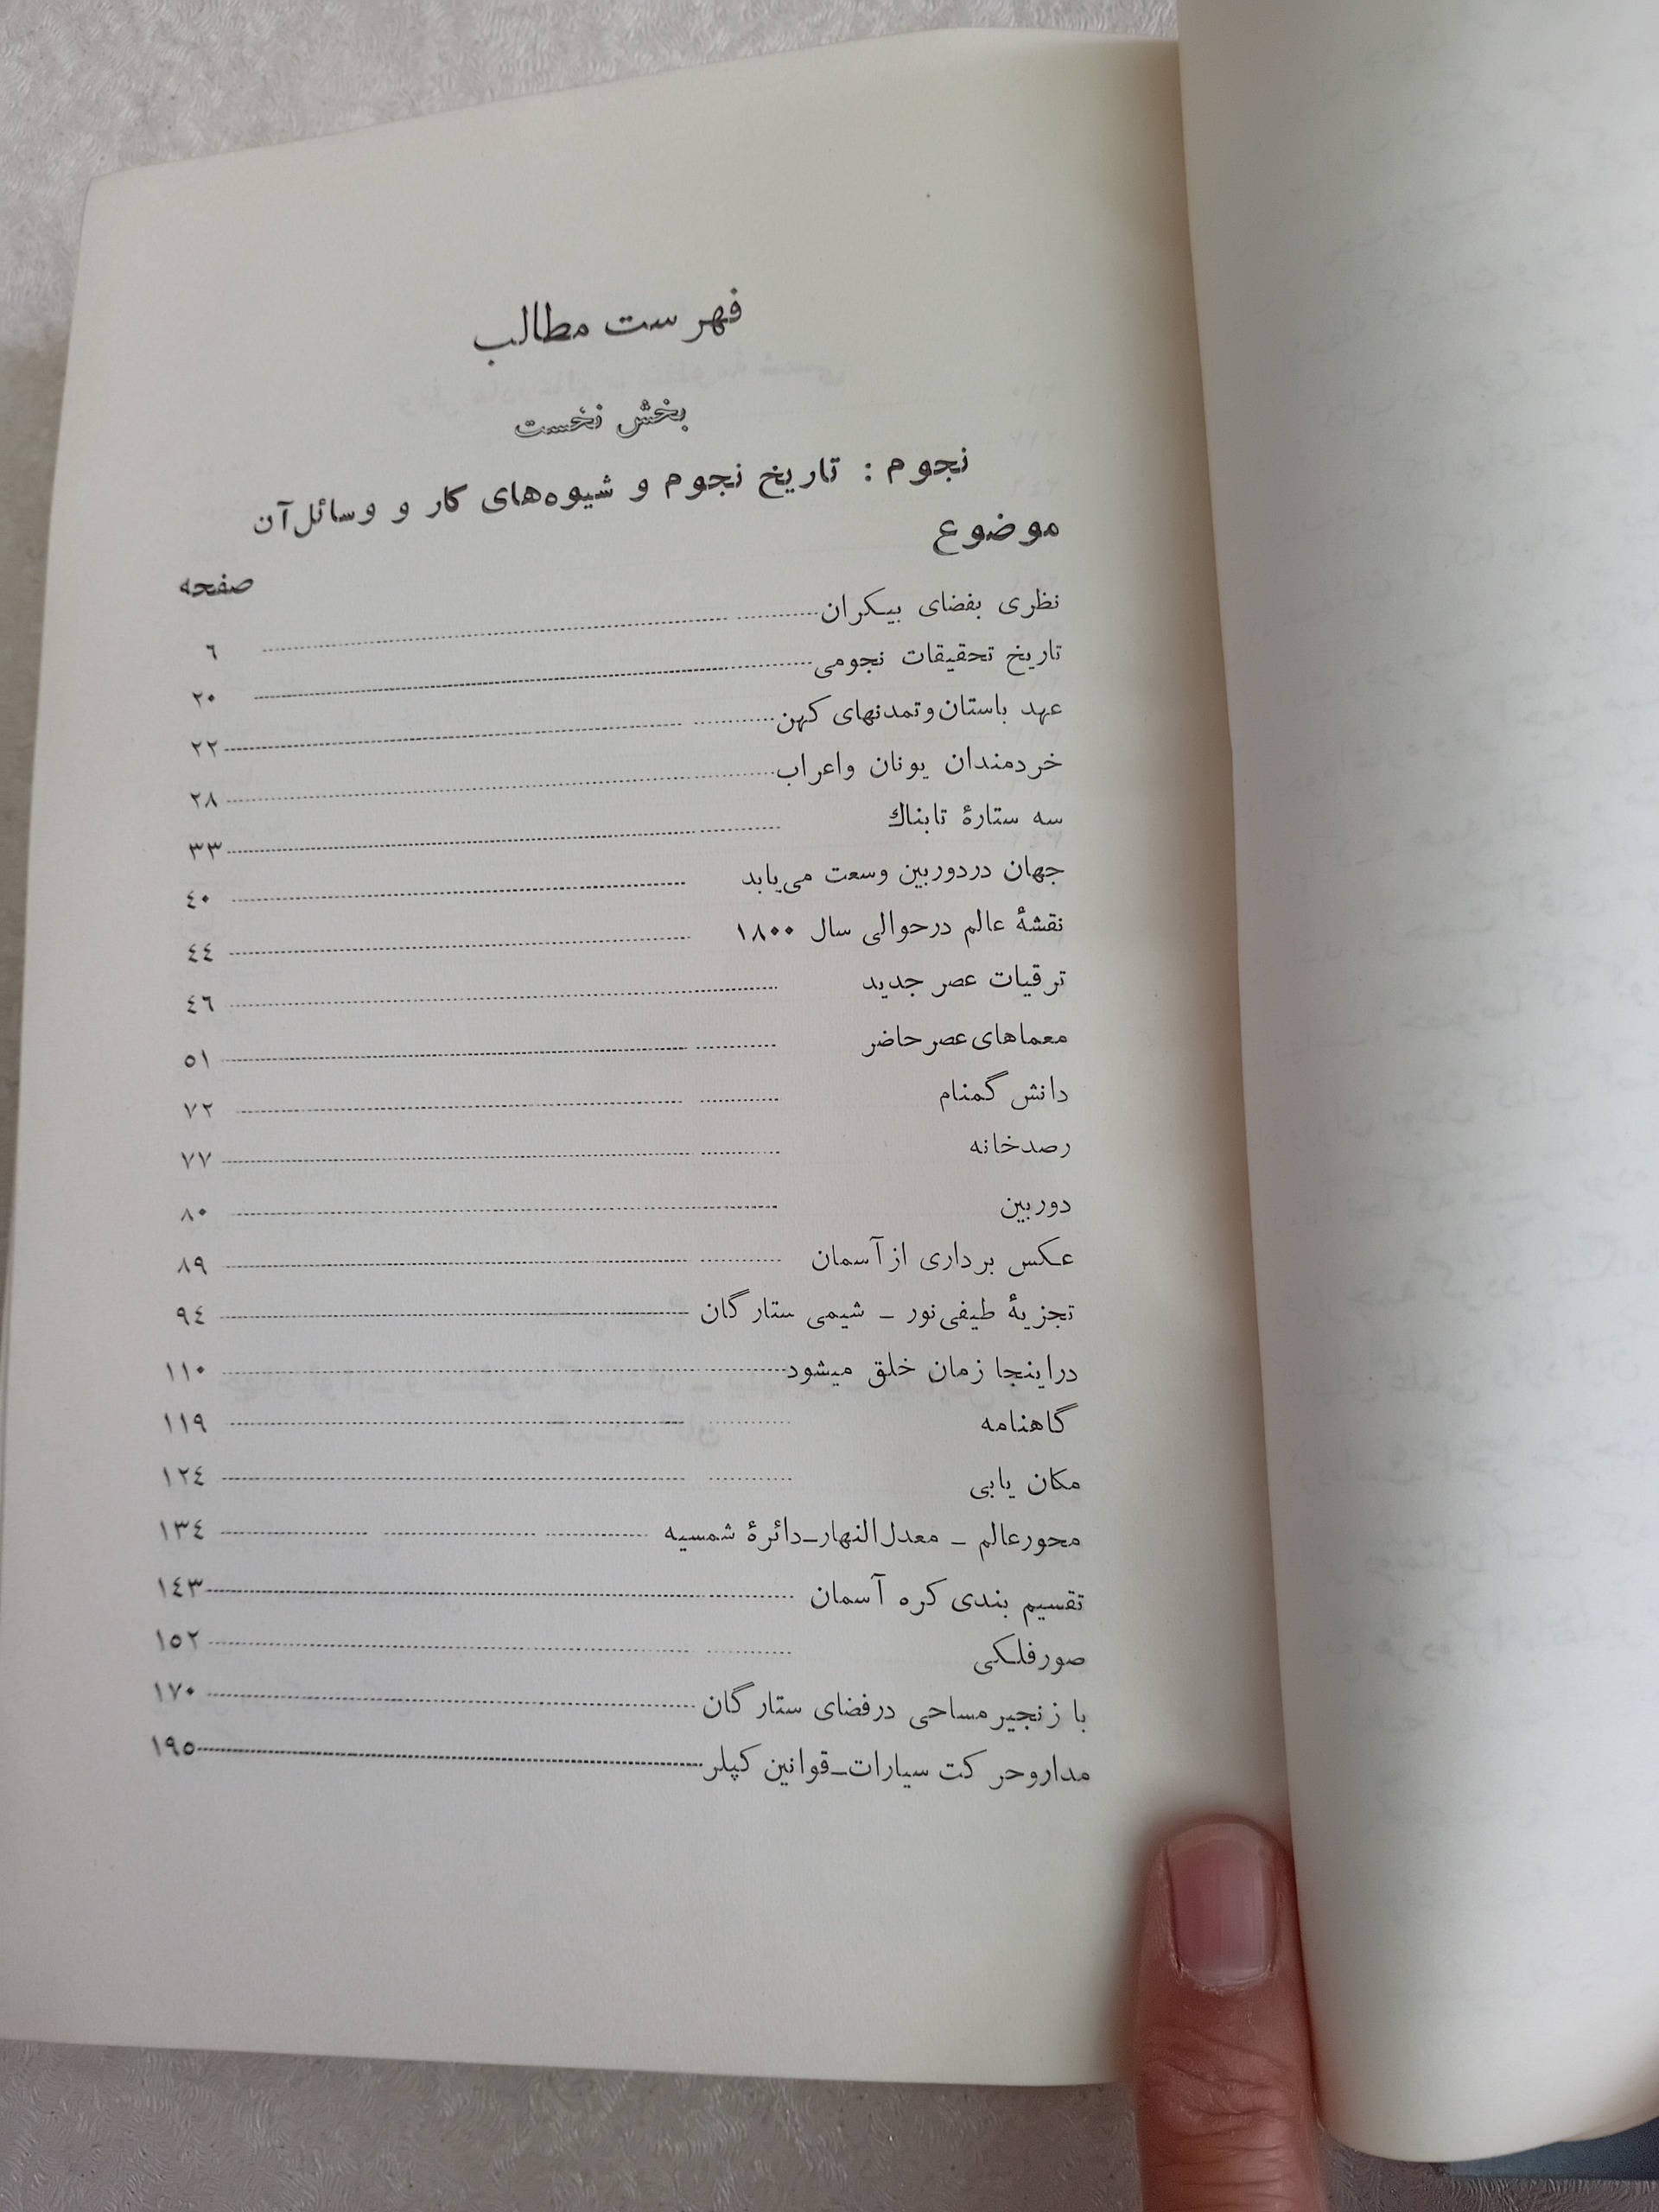 فهرست مطالب
بخش نخست
نجوم : تاریخ نجوم و شیوه‌های کار و وسائل آن
موضوع
صفحه
نظری بفضای بیکران ٦
تاریخ تحقیقات نجومی ٢٠
عهد باستان و تمدنهای کهن ٢٢
خردمندان یونان و اعراب ٢٨
سه ستارهٔ تابناك ٣٣
جهان در دوربین وسعت می‌یابد ٤٠
نقشهٔ عالم در حوالی سال ١٨٠٠ ٤٤
ترقیات عصر جدید ٤٦
معماهای عصر حاضر ٥١
دانش گمنام ٧٢
رصدخانه ٧٧
دوربین ٨٠
عکس برداری از آسمان ٨٩
تجزیهٔ طیفی نور – شیمی ستارگان ٩٤
در اینجا زمان خلق میشود ١١٠
گاهنامه ١١٩
مکان یابی ١٢٤
محور عالم – معدل‌النهار–دائرهٔ شمسیه ١٣٤
تقسیم بندی کره آسمان ١٤٣
صور فلکی ١٥٢
با زنجیر مساحی در فضای ستارگان ١٧٠
مدار و حرکت سیارات–قوانین کپلر ١٩٥